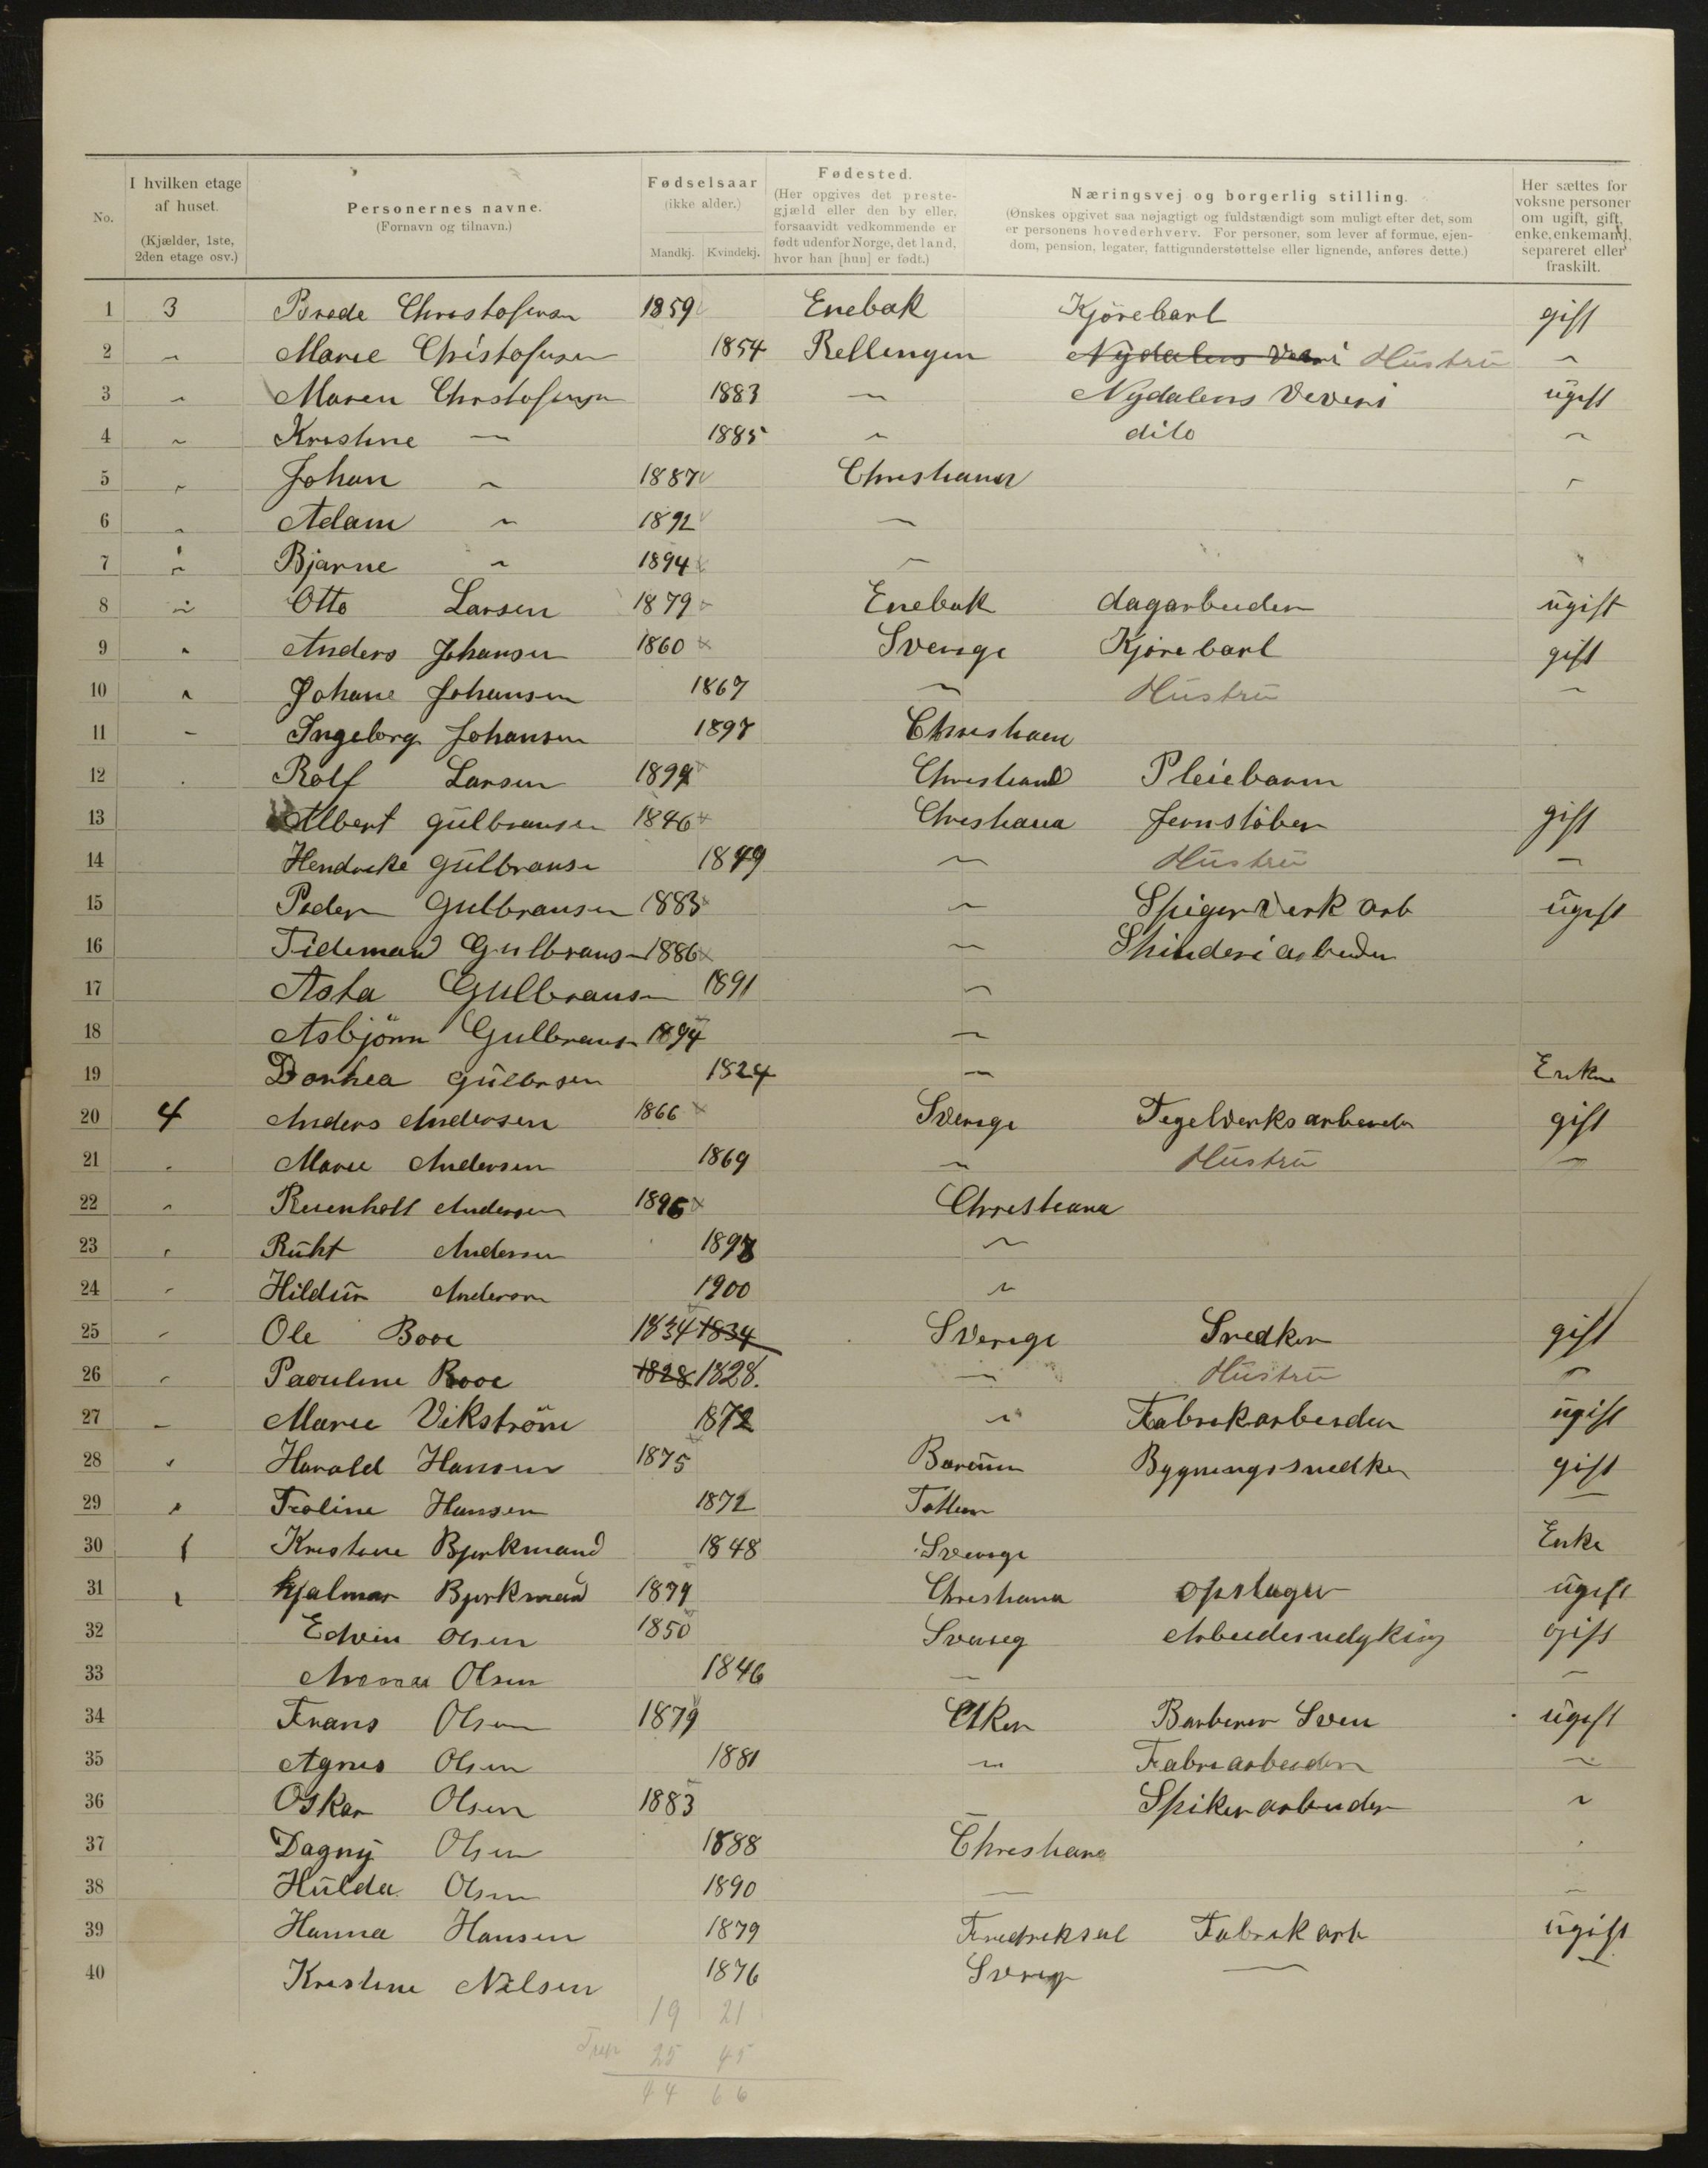 No. | I hvilken etage af huset. (Kjælder, 1ste, 2den etage osv.) | Personernes navne. (Fornavn og tilnavn.) | Fødselsaar (ikke alder.) Mandkj. Kvindekj. | Fødested. (Her opgives det prestegjæld eller den by eller, forsaavidt vedkommende er født udenfor Norge, det land, hvor han [hun] er født.) | Næringsvej og borgerlig stilling. (Ønskes opgivet saa nøjagtigt og fuldstændigt som muligt efter det, som er personens hovederhverv. For personer, som lever af formue, ejendom, pension, legater, fattigunderstøttelse eller lignende, anføres dette.) | Her sættes for voksne personer om ugift, gift, enke, enkemand, separeret eller fraskilt.
1 3 Brede Christofersen 1859 Enebak Kjörekarl gift
2 " Marie Christofersen 1854 Rellingen Nydalens Veveri Hustru "
3 " Maren Christofersen 1883 " Nydalens Veveri ugift
4 " Kristine " 1885 " dito "
5 " Johan " 1887 Christiania "
6 " Adam " 1892 "
7 " Bjarne " 1894 "
8 " Otto Larsen 1879 Enebak dagarbeider ugift
9 " Anders Johansen 1860 Sverige Kjörekarl gift
10 " Johane Johansen 1867 " Hustru "
11 " Ingeborg Johansen 1897 Christiania
12 Rolf Larsen 1899 Christiania Pleiebarn
13 Albert Gulbransen 1846 Christiania Jernstöber gift
14 Hendrike Gulbransen 1849 " Hustru "
15 Peder Gulbransen 1883 " Spigerverk arb ugift
16 Tidemand Gulbransen 1886 " Spinderiarbeider
17 Asta Gulbransen 1891 "
18 Asbjörn Gulbransen 1894 "
19 Dorthea Gulbrsen 1824 " Enke
20 4 Anders Andersen 1866 Sverige Tegelverksarbeider gift
21 " Marie Andersen 1869 " Hustru "
22 " Reienholt Andersen 1896 Christiana
23 " Ruht Andersen 1898 "
24 " Hildur Andersen 1900 "
25 " Ole Booe 1834 1834 Sverige Snedker gift
26 " Paouline Booe 1828 1828. " Hustru "
27 " Marie Vikström 1872 " Fabrikarbeider ugift
28 " Harald Hansen 1875 Barüm Bygningssnedker gift
29 " Troline Hansen 1872 Totten "
30 1 Kristine Bjorkmand 1848 Sverige Enke
31 1 Hjalmar Bjorkmand 1879 Christiana opslager ugift
32 Edvin Olsen 1850 Sverieg gift
33 Olsen 1846 " "
34 Frans Olsen 1879 Aker Barberer Sven ugift
35 Agnes Olsen 1881 " Fabriarbeider "
36 Oskar Olsen 1883 Spikerarbeider "
37 Dagny Olsen 1888 Christiana
38 Hulda Olsen 1890 " "
39 Hanna Hansen 1879 Fredriksal Fabrik arb ugift
40 Kristine Nilsen 1876 Sverig " "
19 21
25 45
44 66